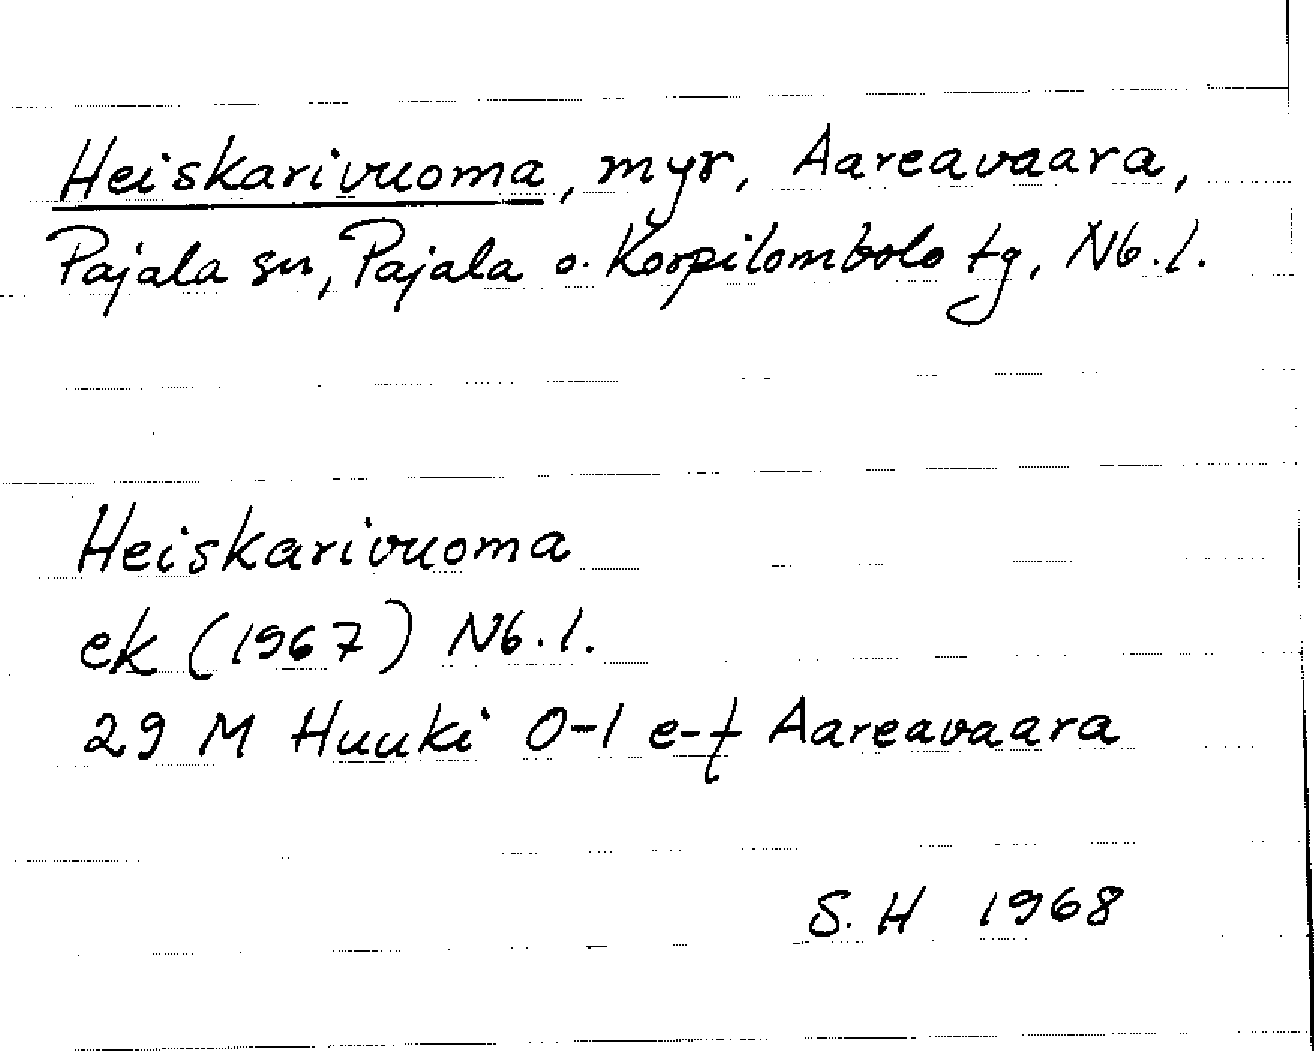 Heiskarivuoma, myr, Aareavaara,
Pajala sn, Pajala o. Korpilombolo tg, Nb.l.
Heiskarivuoma
ek (1967) Nb.l.
29 M Huuki 0-1 e-f Aareavaara
S. H 1968